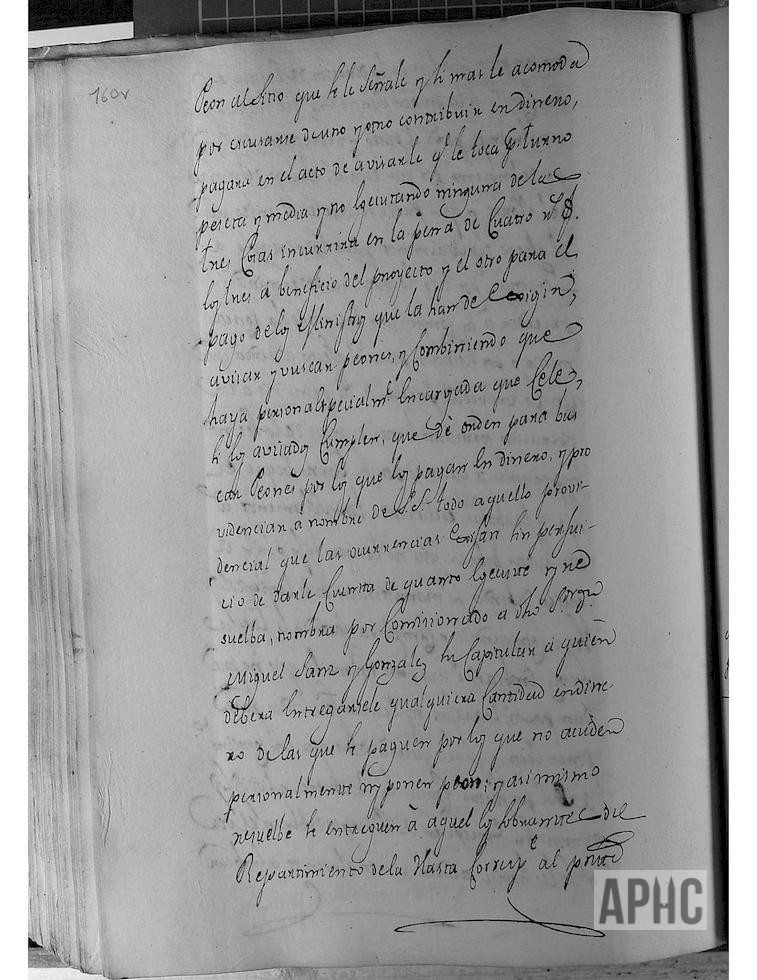 160v
Peon al sitio que se le señale y si mas le acomoda
por escusarse de uno y otro contribuir en dinero,
pagara en el acto de avisarle q.e le toca p.r turno
peseta y media y no egecutando ninguna de las
tres cosas incurrira en la pena de quatro r.s
los tres a beneficio del proyecto y el otro para el
pago de los Ministros que la han de exigir,
avisar y buscar peones, y combiniendo que
haya persona especialm.te encargada que cele,
si los avisados cumplen, que dè orden para bus
car Peones por los que los pagan en dinero, y pro
videnciar à nombre de S.S. todo aquello provi-
dencial que las ocurrencias exijan sin perjui-
cio de darle cuenta de quanto egecute y re
suelba, nombra por Comisionado à dho
Miguel Sanz y Gonzalez su Capitular à quièn
deberà entregarsele qualquiera cantidad en dine
ro de las que se paguen por los que no acuden
personalmente ny ponen peon; y asi mismo
resuelbe se entreguen à aquel los sobrantes del
Repartimiento dela Hasta al
APHC